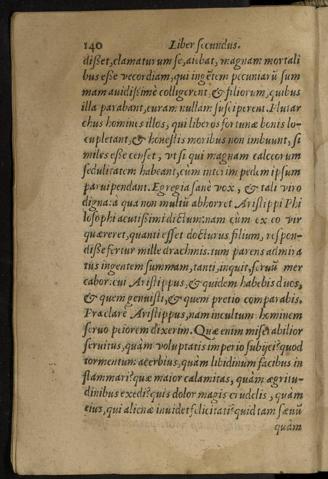 140 Liber secundus.
disset, clamaturum se, aiebat, magnam mortali
bus esse vecordiam, qui ingētem pecuniarū sum
mam auidissimè colligerent, & filiorum, quibus
illa parabant, curam nullam susciperent. Plutar
chus homines illos, qui liberos fortunæ bonis lo-
cupletant, & honestis moribus non imbuunt, si
miles esse censet, vt si qui magnam calceorum
sedulitatem habeant, cum interim pedem ipsum
paruipendant. Egregia sanè vox, & tali viro
digna: à qua non multū abhorret Aristippi Phi
losophi acutissimi dictum: nam cùm ex eo vir
quæreret, quanti esset docturus filium, respon-
disse fertur mille drachmis. tum parens admira
tus ingentem summam, tanti, inquit, seruū mer
cabor: cui Aristippus, & quidem habebis duos,
& quem genuisti, & quem pretio comparabis.
Præclarè Aristippus, nam incultum hominem
seruo peiorem dixerim. Quæ enim miserabilior
seruitus, quàm voluptatis imperio subijci? quod
tormentum acerbius, quàm libidinum facibus in
flammari? quæ maior calamitas, quàm ægritu-
dinibus exedi? quis dolor magis crudelis, quàm
eius, qui alienæ inuidet felicitati? quid tam sæuū
quàm